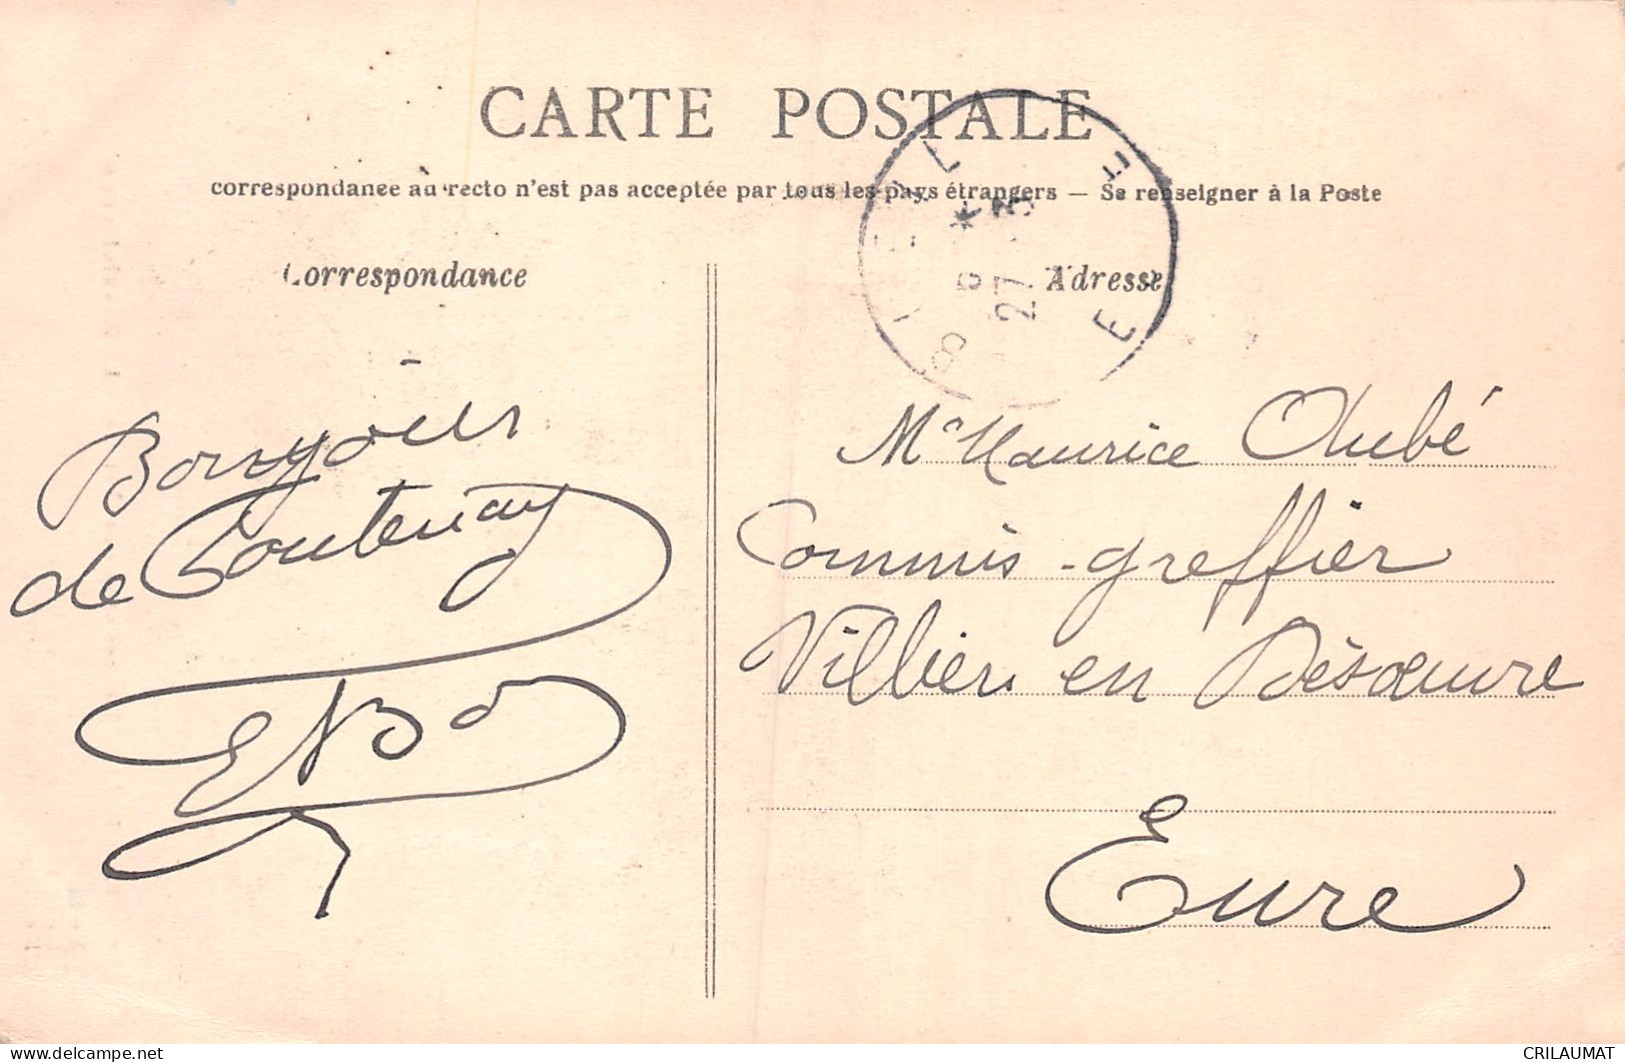 CARTE POSTALE
correspondance au recto n'est pas acceptée par tous les pays étrangers — Se renseigner à la Poste
Correspondance
Adresse
Bonjour
de Coutenay
Mr Maurice Chubé
Commis-greffier
Villiers en Désœuvre
Eure
27
CRILAUMAT